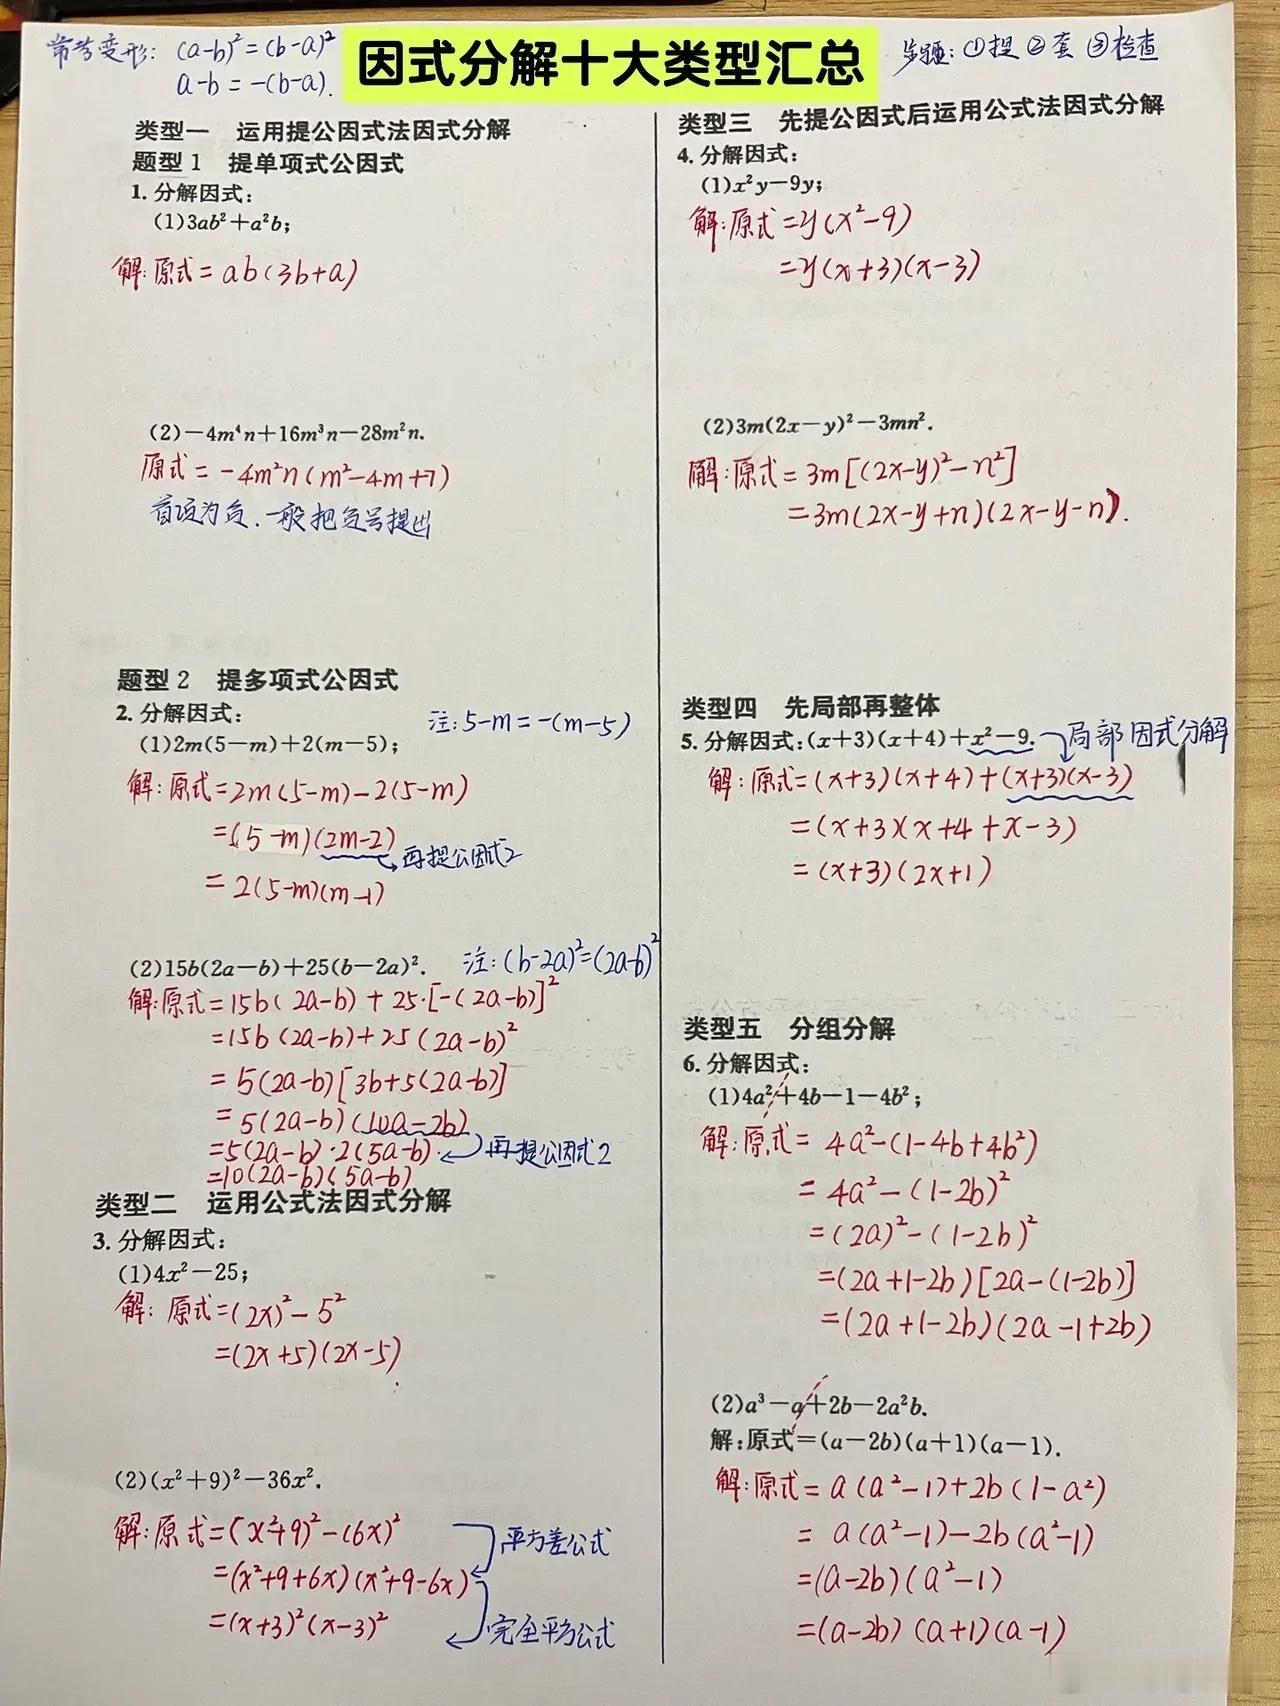 常考变形: (a-b)²=(b-a)²
a-b=-(b-a).
因式分解十大类型汇总
步骤:①提②套③检查
类型一 运用提公因式法因式分解
题型1 提单项式公因式
1.分解因式:
(1)3ab²+a²b;
解:原式=ab(3b+a)
(2)-4m⁴n+16m³n-28m²n.
原式=-4m²n(m²-4m+7)
首项为负.一般把负号提出
题型2 提多项式公因式
2.分解因式:
注:5-m=-(m-5)
(1)2m(5-m)+2(m-5);
解:原式=2m(5-m)-2(5-m)
=(5-m)(2m-2)
再提公因式2
=2(5-m)(m-1)
(2)15b(2a-b)+25(b-2a)².
注:(b-2a)²=(2a-b)²
解:原式=15b(2a-b)+25·[-(2a-b)]²
=15b(2a-b)+25(2a-b)²
=5(2a-b)[3b+5(2a-b)]
=5(2a-b)(10a-2b)
=5(2a-b)·2(5a-b).
再提公因式2
=10(2a-b)(5a-b)
类型二 运用公式法因式分解
3.分解因式:
(1)4x²-25;
解:原式=(2x)²-5²
=(2x+5)(2x-5).
(2)(x²+9)²-36x².
解:原式=(x²+9)²-(6x)²
平方差公式
=(x²+9+6x)(x²+9-6x)
=(x+3)²(x-3)²
完全平方公式
类型三 先提公因式后运用公式法因式分解
4.分解因式:
(1)x²y-9y;
解:原式=y(x²-9)
=y(x+3)(x-3)
(2)3m(2x-y)²-3mn².
解:原式=3m[(2x-y)²-n²]
=3m(2x-y+n)(2x-y-n).
类型四 先局部再整体
5.分解因式:(x+3)(x+4)+x²-9.
局部因式分解
解:原式=(x+3)(x+4)+(x+3)(x-3)
=(x+3)(x+4+x-3)
=(x+3)(2x+1)
类型五 分组分解
6.分解因式:
(1)4a²+4b-1-4b²;
解:原式=4a²-(1-4b+4b²)
=4a²-(1-2b)²
=(2a)²-(1-2b)²
=(2a+1-2b)[2a-(1-2b)]
=(2a+1-2b)(2a-1+2b)
(2)a³-a+2b-2a²b.
解:原式=(a-2b)(a+1)(a-1).
解:原式=a(a²-1)+2b(1-a²)
=a(a²-1)-2b(a²-1)
=(a-2b)(a²-1)
=(a-2b)(a+1)(a-1)